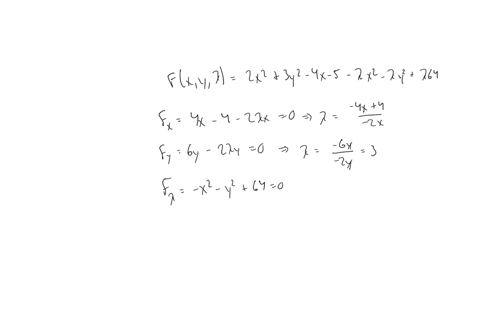 F(x,y,λ) = 2x² + 3y² - 4x - 5 - λx² - λy² + λ64
Fₓ = 4x - 4 - 2λx = 0 ⇒ λ = (-4x+4)/(-2x)
F_y = 6y - 2λy = 0 ⇒ λ = (-6x)/(-2y) = 3
F_λ = -x² - y² + 64 = 0